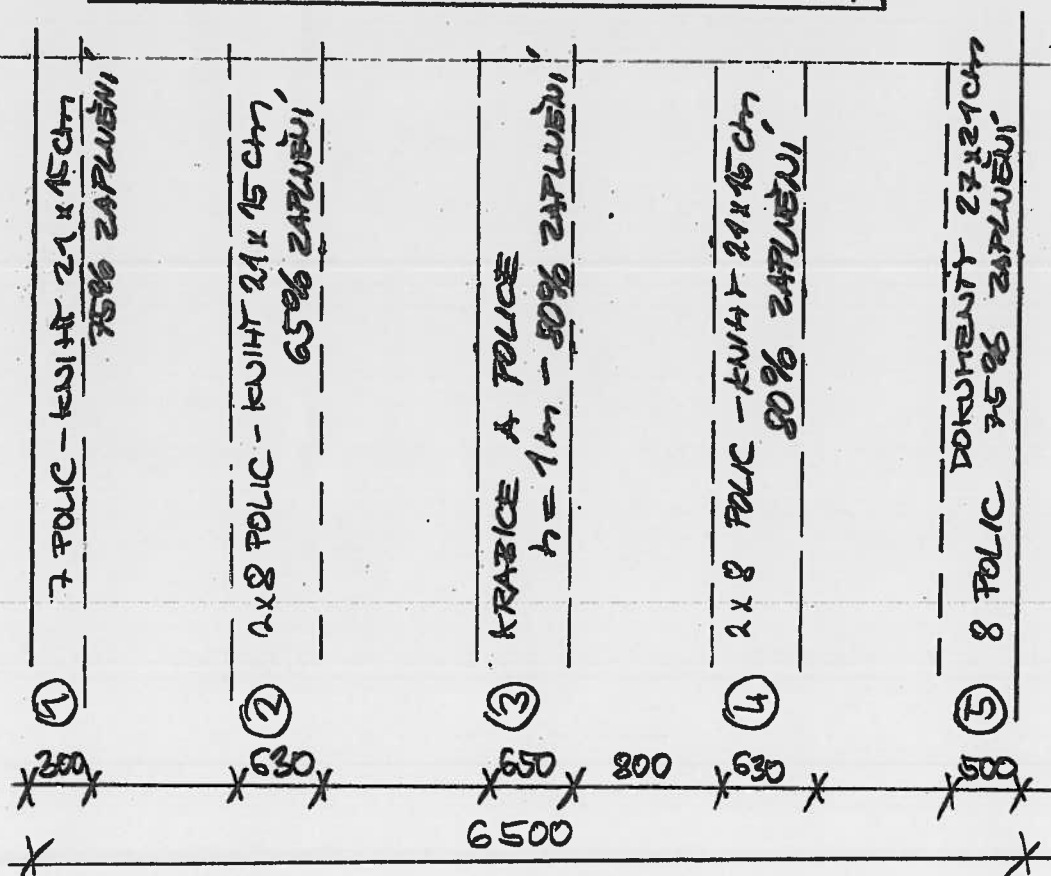 7 POLIC - KNIHY 21 x 15 cm
75% ZAPLNĚNÍ
2x8 POLIC - KNIHY 21 x 15 cm
65% ZAPLNĚNÍ
KRABICE A POLICE
h = 1m - 80% ZAPLNĚNÍ
2 x 8 POLIC - KNIHY 21x15 cm
80% ZAPLNĚNÍ
DOKUMENTY 27x21cm
8 POLIC 75% ZAPLNĚNÍ
1 2 3 4 5
300 630 650 800 630 500
6500